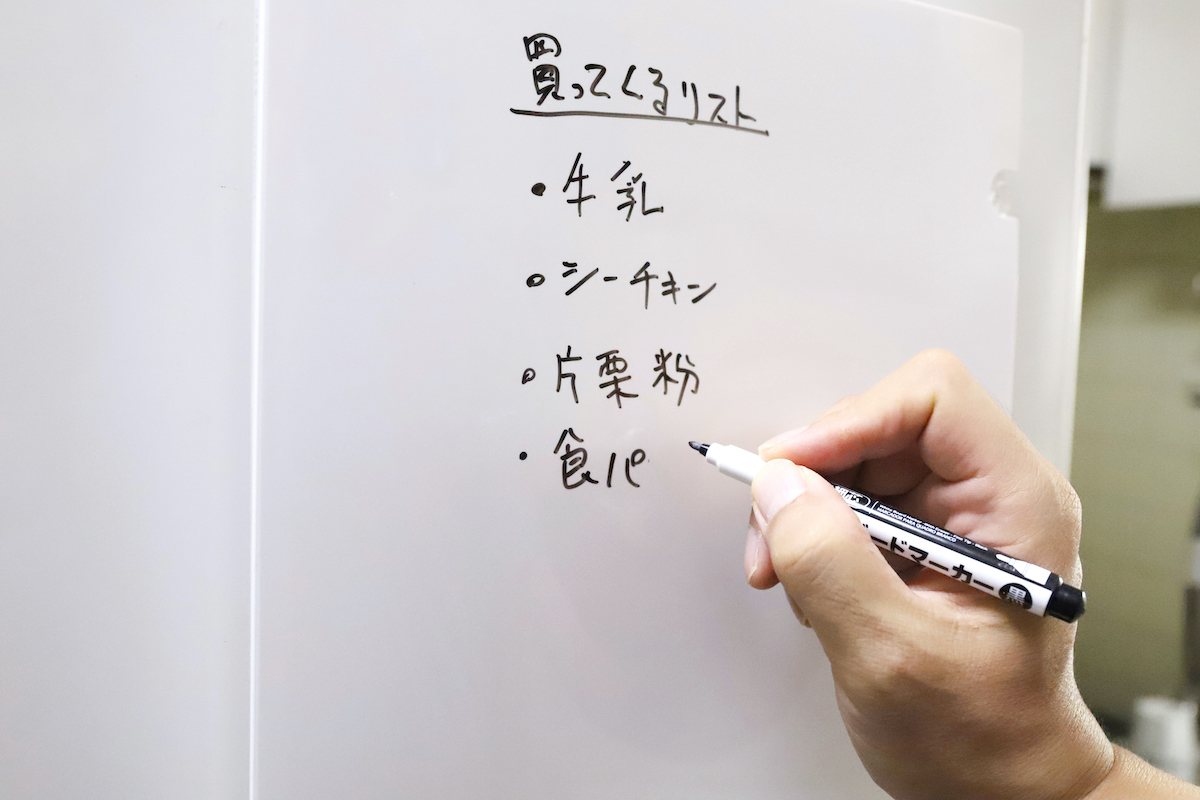 買ってくるリスト
・牛乳
・シーチキン
・片栗粉
・食パ
ボードマーカー 黒